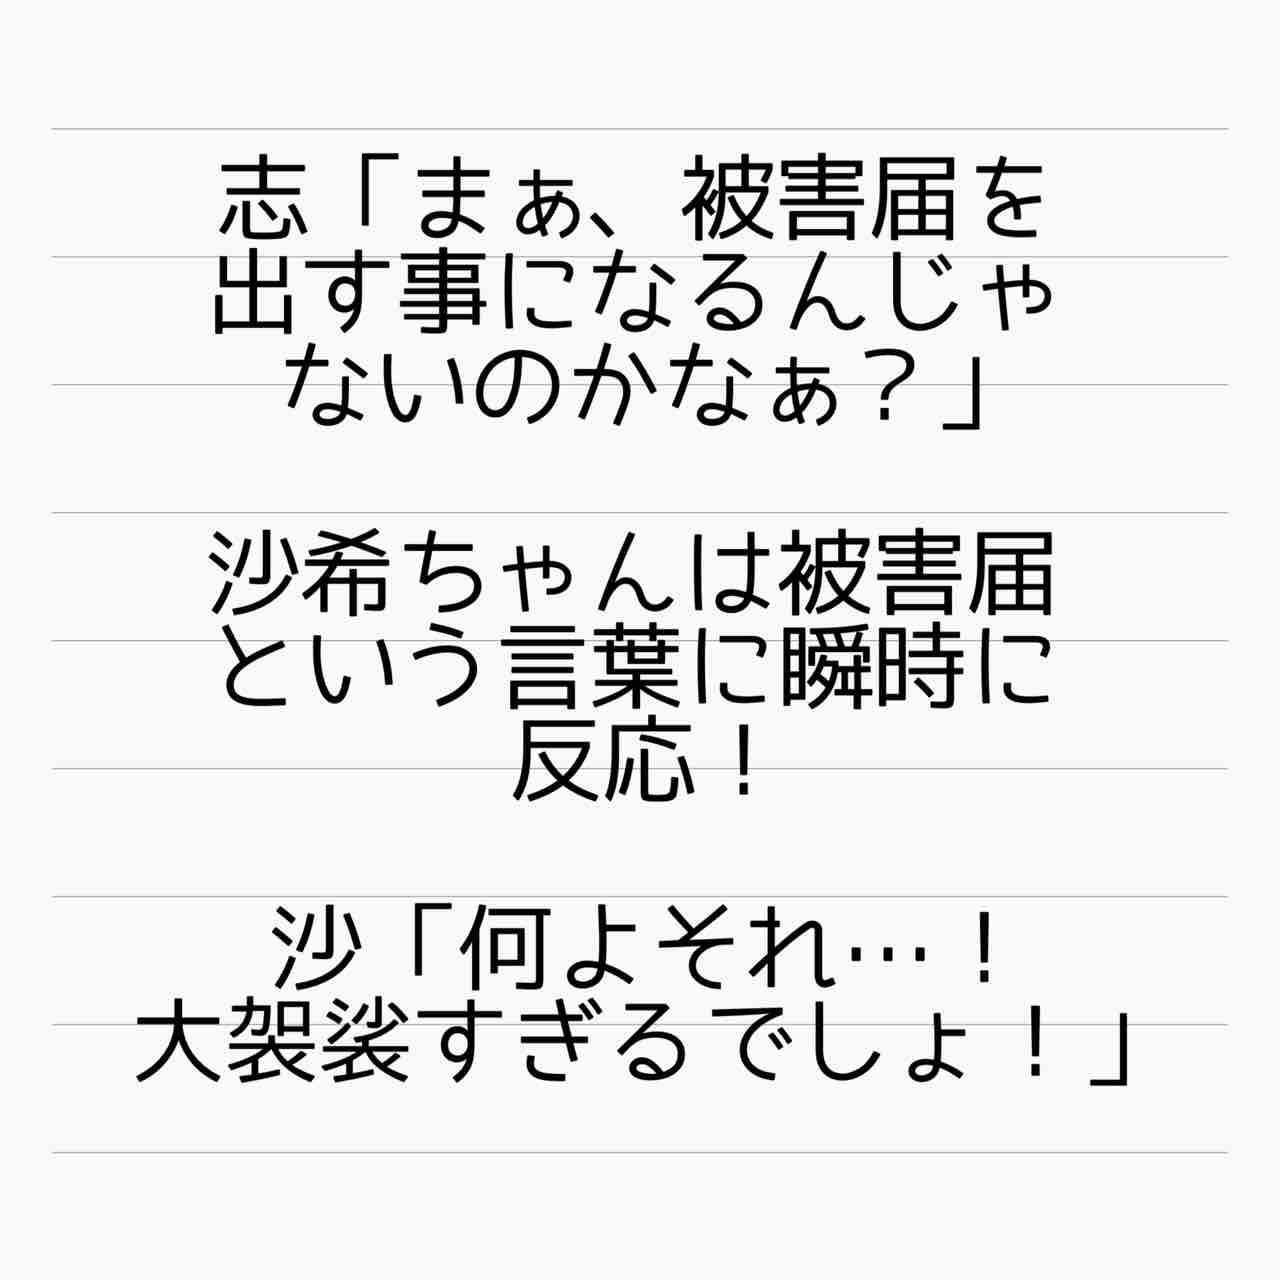 志「まぁ、被害届を
出す事になるんじゃ
ないのかなぁ？」
沙希ちゃんは被害届
という言葉に瞬時に
反応！
沙「何よそれ…！
大袈裟すぎるでしょ！」